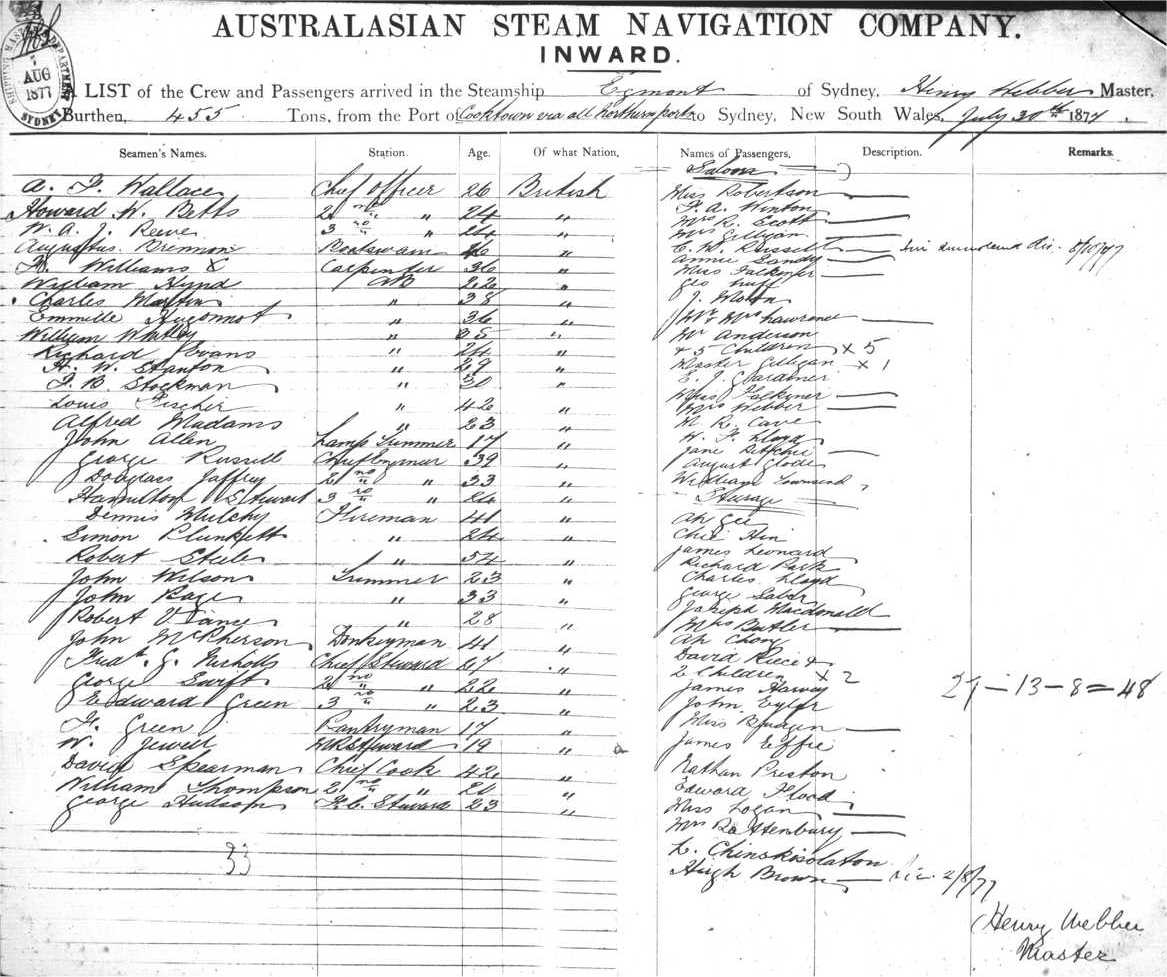 SHIPPING MASTER'S DEPARTMENT
AUG
1877
SYDNEY
AUSTRALASIAN STEAM NAVIGATION COMPANY.
INWARD.
LIST of the Crew and Passengers arrived in the Steamship Egmont of Sydney, Henry Webber Master,
Burthen, 455 Tons, from the Port of Cooktown via all Northern ports to Sydney, New South Wales, July 30th 1877.
Seamen's Names. Station. Age. Of what Nation, Names of Passengers, Description. Remarks.
A. F. Wallace Chief Officer 26 British
Howard W. Betts 2nd " 24 "
W. A. J. Reeve 3rd " 24 "
Augustus Brennon Boatswain 40 "
Williams Carpenter 36 "
William Hynd AB 22 "
Charles Martin " 38 "
Emmille Hugonnot " 36 "
William Whatley " 35 "
Richard Evans " 24 "
H. W. Stanton " 29 "
J. B. Stockman " 30 "
Louis Fischer " 42 "
Alfred Madams " 23 "
John Allen Lamp Trimmer 17 "
George Russell Chief Engineer 39 "
Douglass Jaffrey 2nd " 33 "
Hamilton Stewart 3rd " 26 "
Dennis Mulchy Fireman 41 "
Simon Plunkett " 24 "
Robert Steele " 54 "
John Wilson Trimmer 23 "
John Page " 33 "
Robert Vance " 28 "
John McPherson Donkeyman 41 "
Fredk. G. Nicholls Chief Steward 27 "
George Swift 2nd " 22 "
Edward Green 3rd " 23 "
H. Green Pantryman 17 "
W. Jewell MR Steward 19 "
David Spearman Chief Cook 42 "
William Thompson 2nd " 26 "
George Hudson F.C. Steward 23 "
33
Saloon
Miss Robertson
F. A. Winton
Mrs R. Scott
Mrs Gilligan
C. W. Russell 8/10/77
Annie Sandy
Miss Falkiner
Geo Huff
J. Moton
Mr & Mrs Lawrence
Mr Anderson
& 5 Children x 5
Master Gilligan x 1
E. J. Gardiner
Miss Falkiner
Mrs Webber
M R. Cave
W. F. Lloyd
Jane Ritchie
August Glode
William Townsend
Steerage
Ah Gee
Chie Hin
James Leonard
Richard Park
Charles Lloyd
George Sabor
Joseph Macdonald
Mrs Butler
Ah Chong
David Rice &
2 Children x 2
James Harvey
27 - 13 - 8 = 48
John Eyler
Miss Burgen
James Effie
Nathan Preston
Edward Flood
Miss Logan
Mrs Rattenbury
L. Chinskisolaton
Hugh Brown 2/8/77
Henry Webber
Master